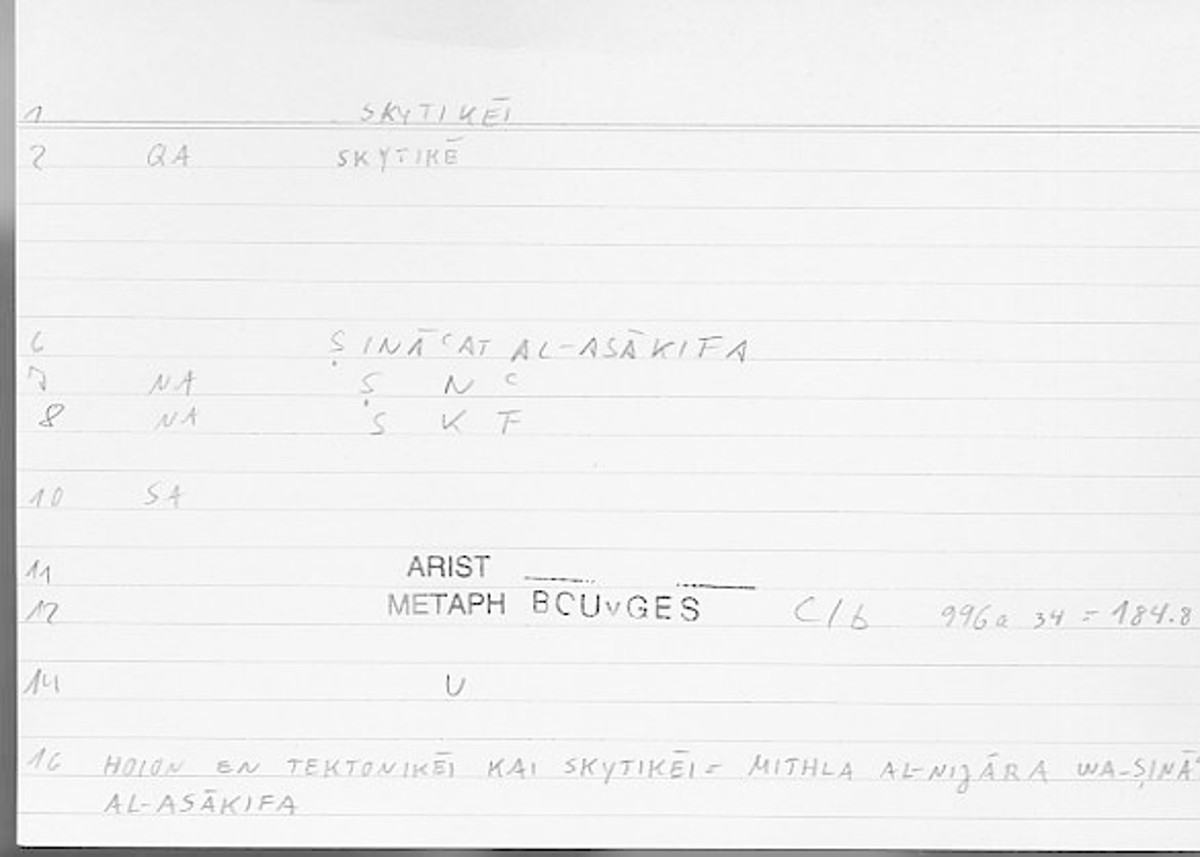 1 SKYTIKĒI
2 QA SKYTIKĒ
6 ṢINĀʿAT AL-ASĀKIFA
7 NA Ṣ N ʿ
8 NA S K F
10 SA
11 ARIST
12 METAPH BOUvGES C/b 996a 34 = 184.8
14 U
16 HOION EN TEKTONIKĒI KAI SKYTIKĒI = MITHLA AL-NIJĀRA WA-ṢINĀʿ
AL-ASĀKIFA